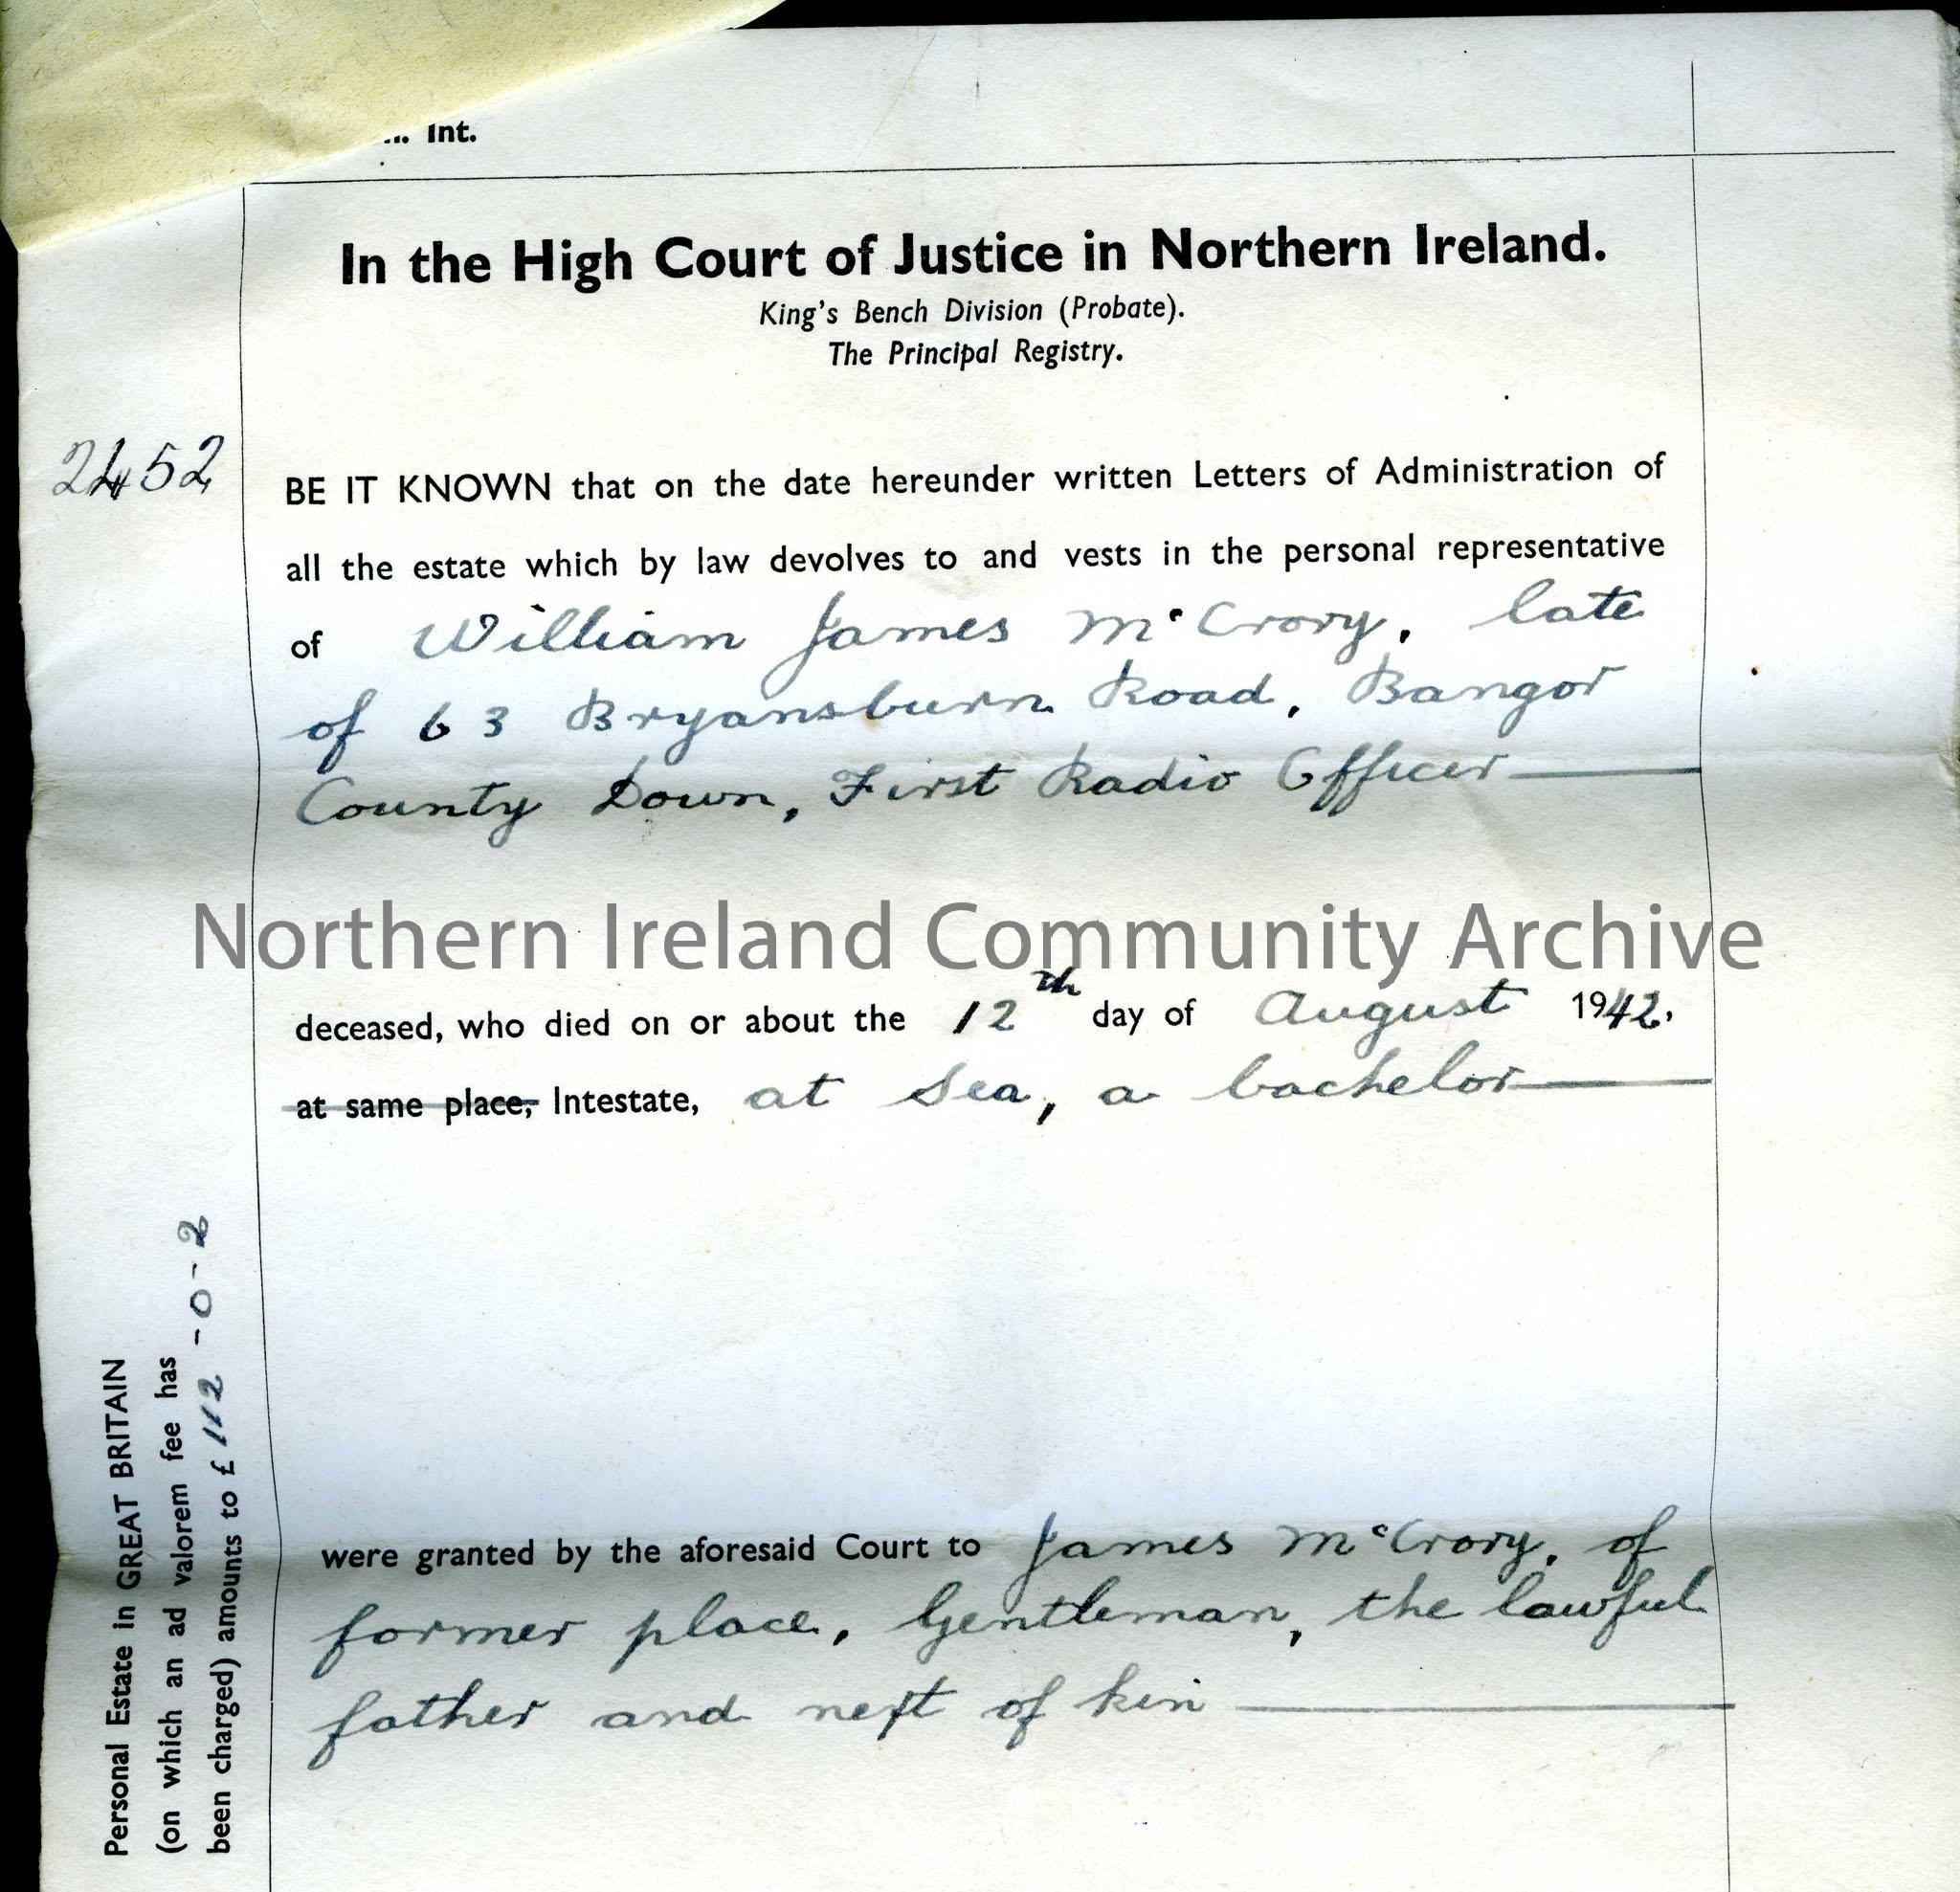 Int.
In the High Court of Justice in Northern Ireland.
King's Bench Division (Probate).
The Principal Registry.
2452
BE IT KNOWN that on the date hereunder written Letters of Administration of
all the estate which by law devolves to and vests in the personal representative
of William James McCrory, late
of 63 Bryansburn Road, Bangor
County Down, First Radio Officer
Northern Ireland Community Archive
deceased, who died on or about the 12th day of August 1942.
at same place, Intestate, at Sea, a bachelor
were granted by the aforesaid Court to James McCrory, of
former place, Gentleman, the lawful
father and next of kin
Personal Estate in GREAT BRITAIN
(on which an ad valorem fee has
been charged) amounts to £112-0-2